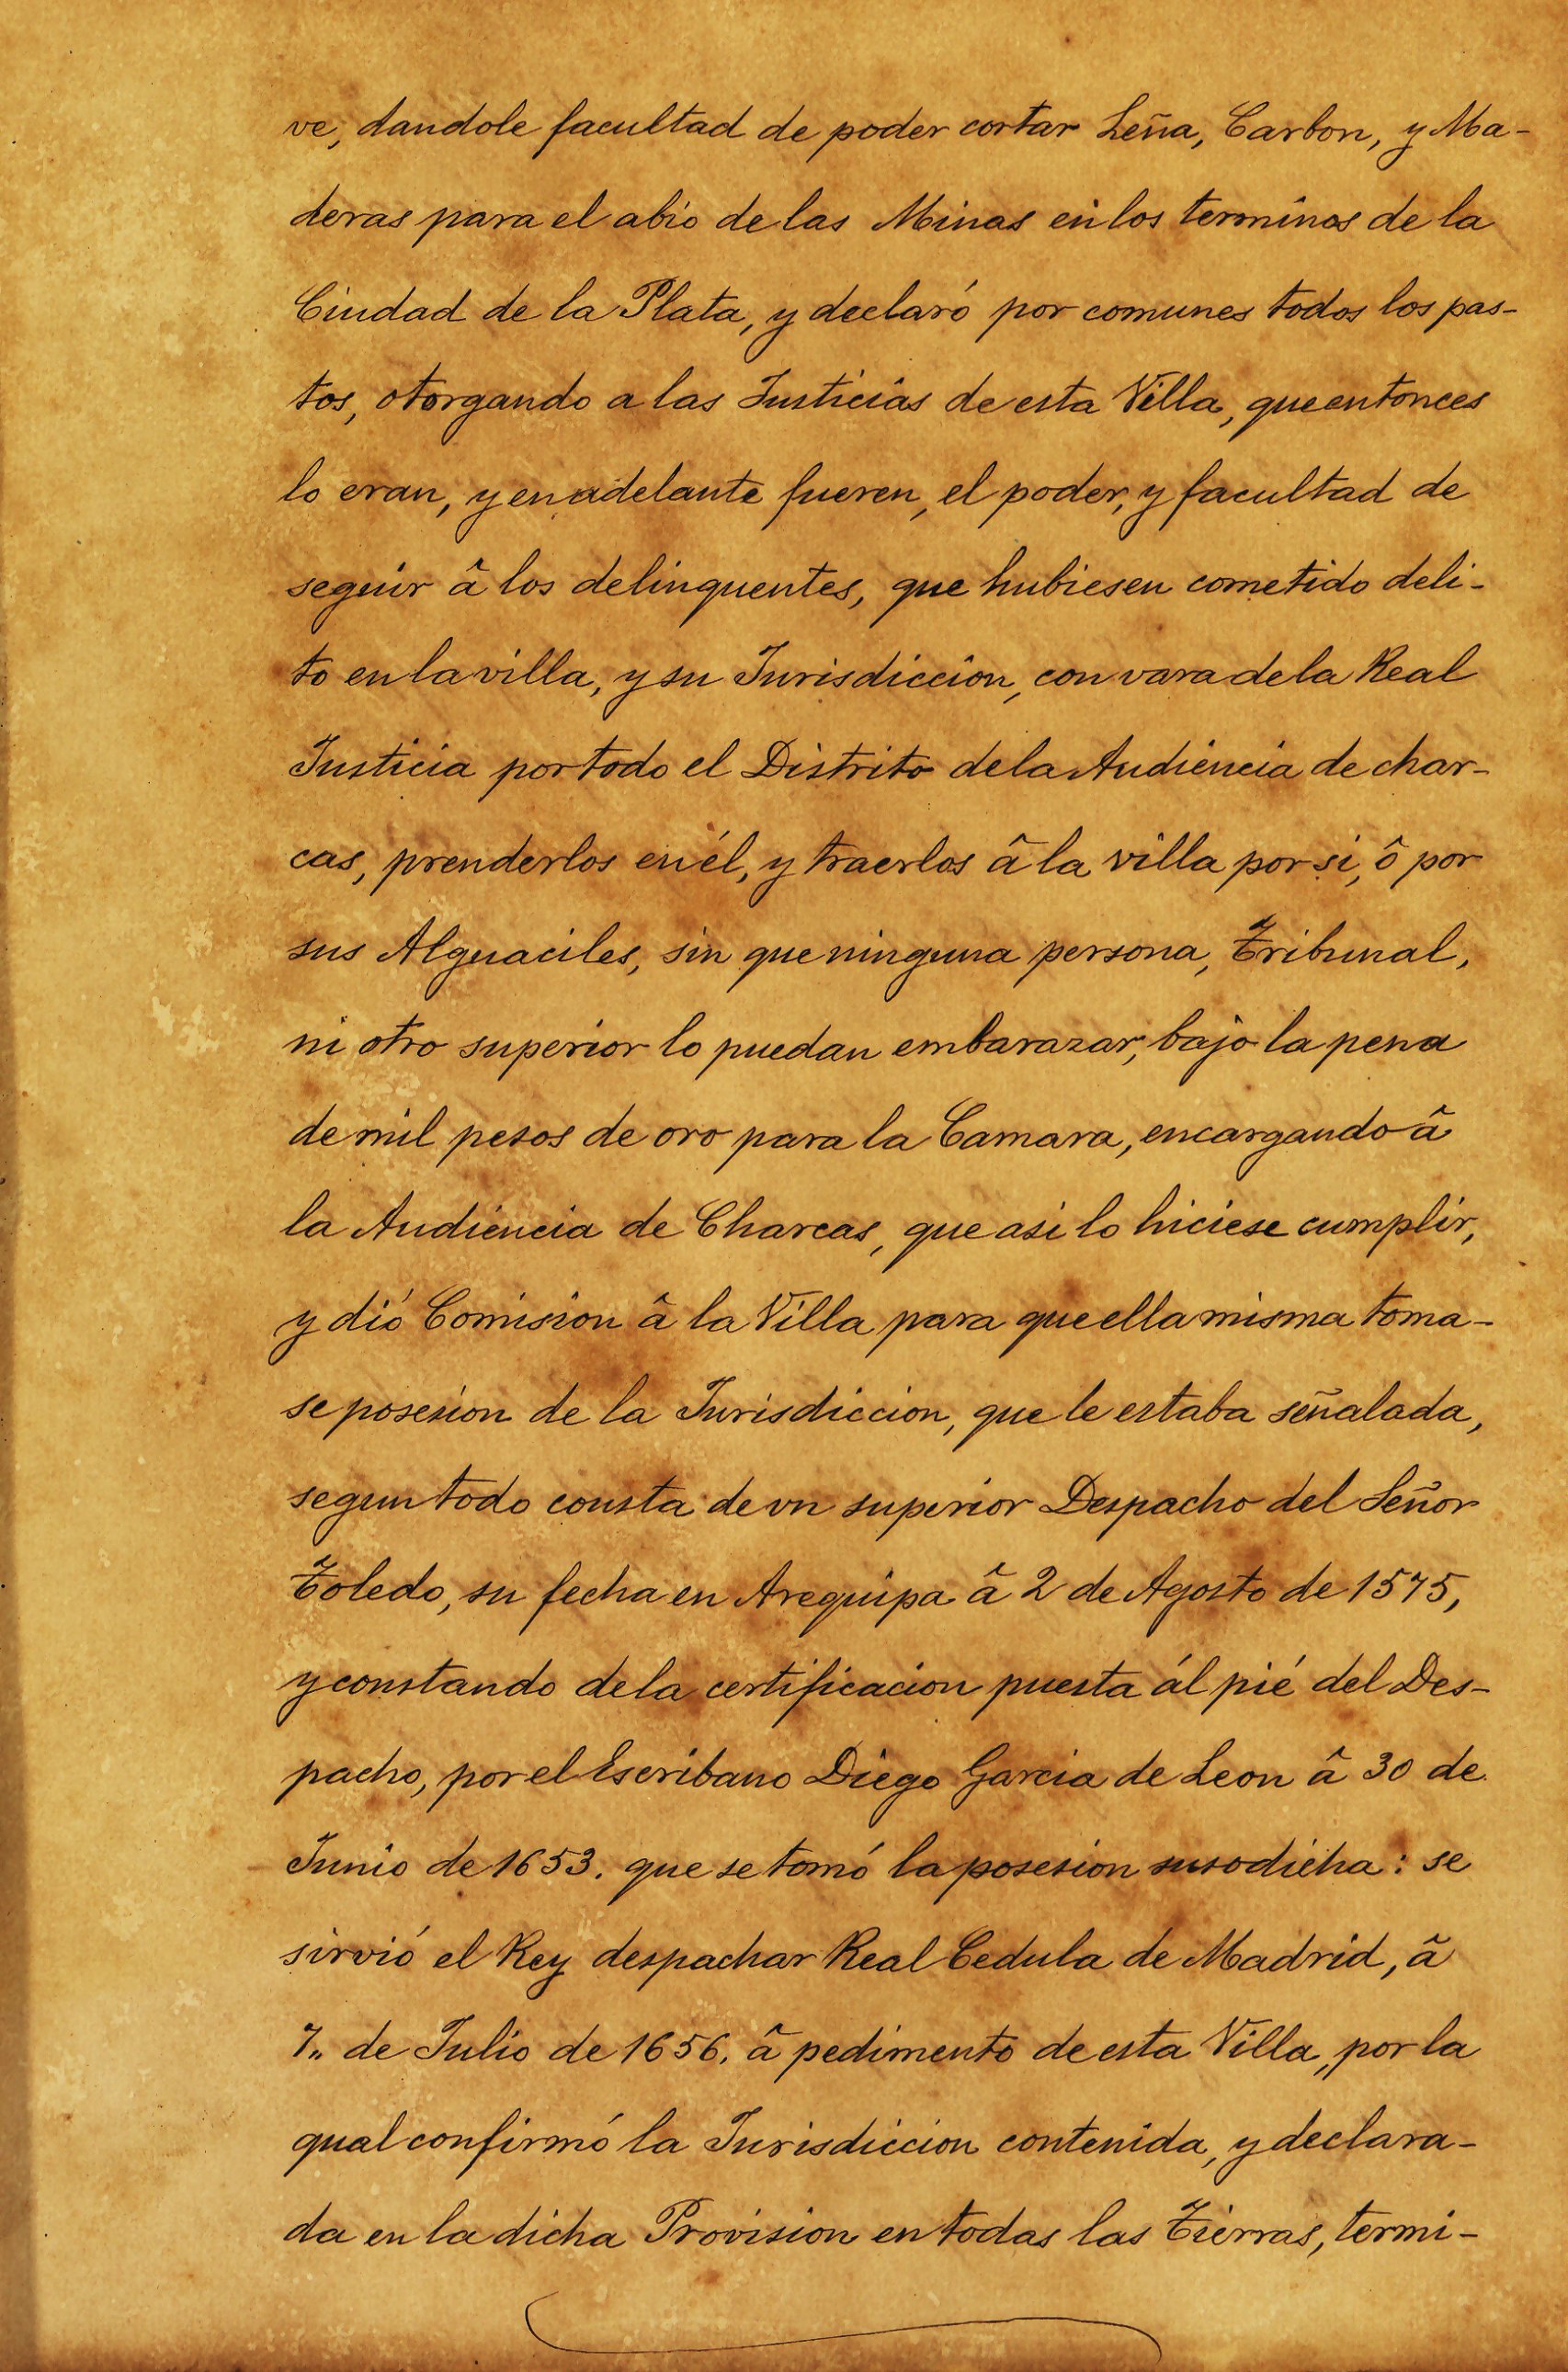 ve, dandole facultad de poder cortar Leña, Carbon, y Ma-
deras para el abio de las Minas en los terminos de la
Ciudad de la Plata, y declaró por comunes todos los pas-
tos, otorgando a las Justicias de esta Villa, que entonces
lo eran, y en adelante fueren, el poder, y facultad de
seguir â los delinquentes, que hubiesen cometido deli-
to en la villa, y su Jurisdiccion, con vara de la Real
Justicia por todo el Distrito de la Audiencia de char-
cas, prenderlos en él, y traerlos â la villa por si, ô por
sus Alguaciles, sin que ninguna persona, Tribunal,
ni otro superior lo puedan embarazar, bajo la pena
de mil pesos de oro para la Camara, encargando â
la Audiencia de Charcas, que asi lo hiciese cumplir,
y dió Comision â la Villa para que ella misma toma-
se posesion de la Jurisdiccion, que le estaba señalada,
segun todo consta de vn superior Despacho del Señor
Toledo, su fecha en Arequipa â 2 de Agosto de 1575,
y constando de la certificacion puesta ál pié del Des-
pacho, por el Escribano Diego Garcia de Leon â 30 de
Junio de 1653. que se tomó la posesion susodicha: se
sirvió el Rey despachar Real Cedula de Madrid, â
7,, de Julio de 1656. â pedimento de esta Villa, por la
qual confirmó la Jurisdiccion contenida, y declara-
da en la dicha Provision en todas las Tierras, termi-